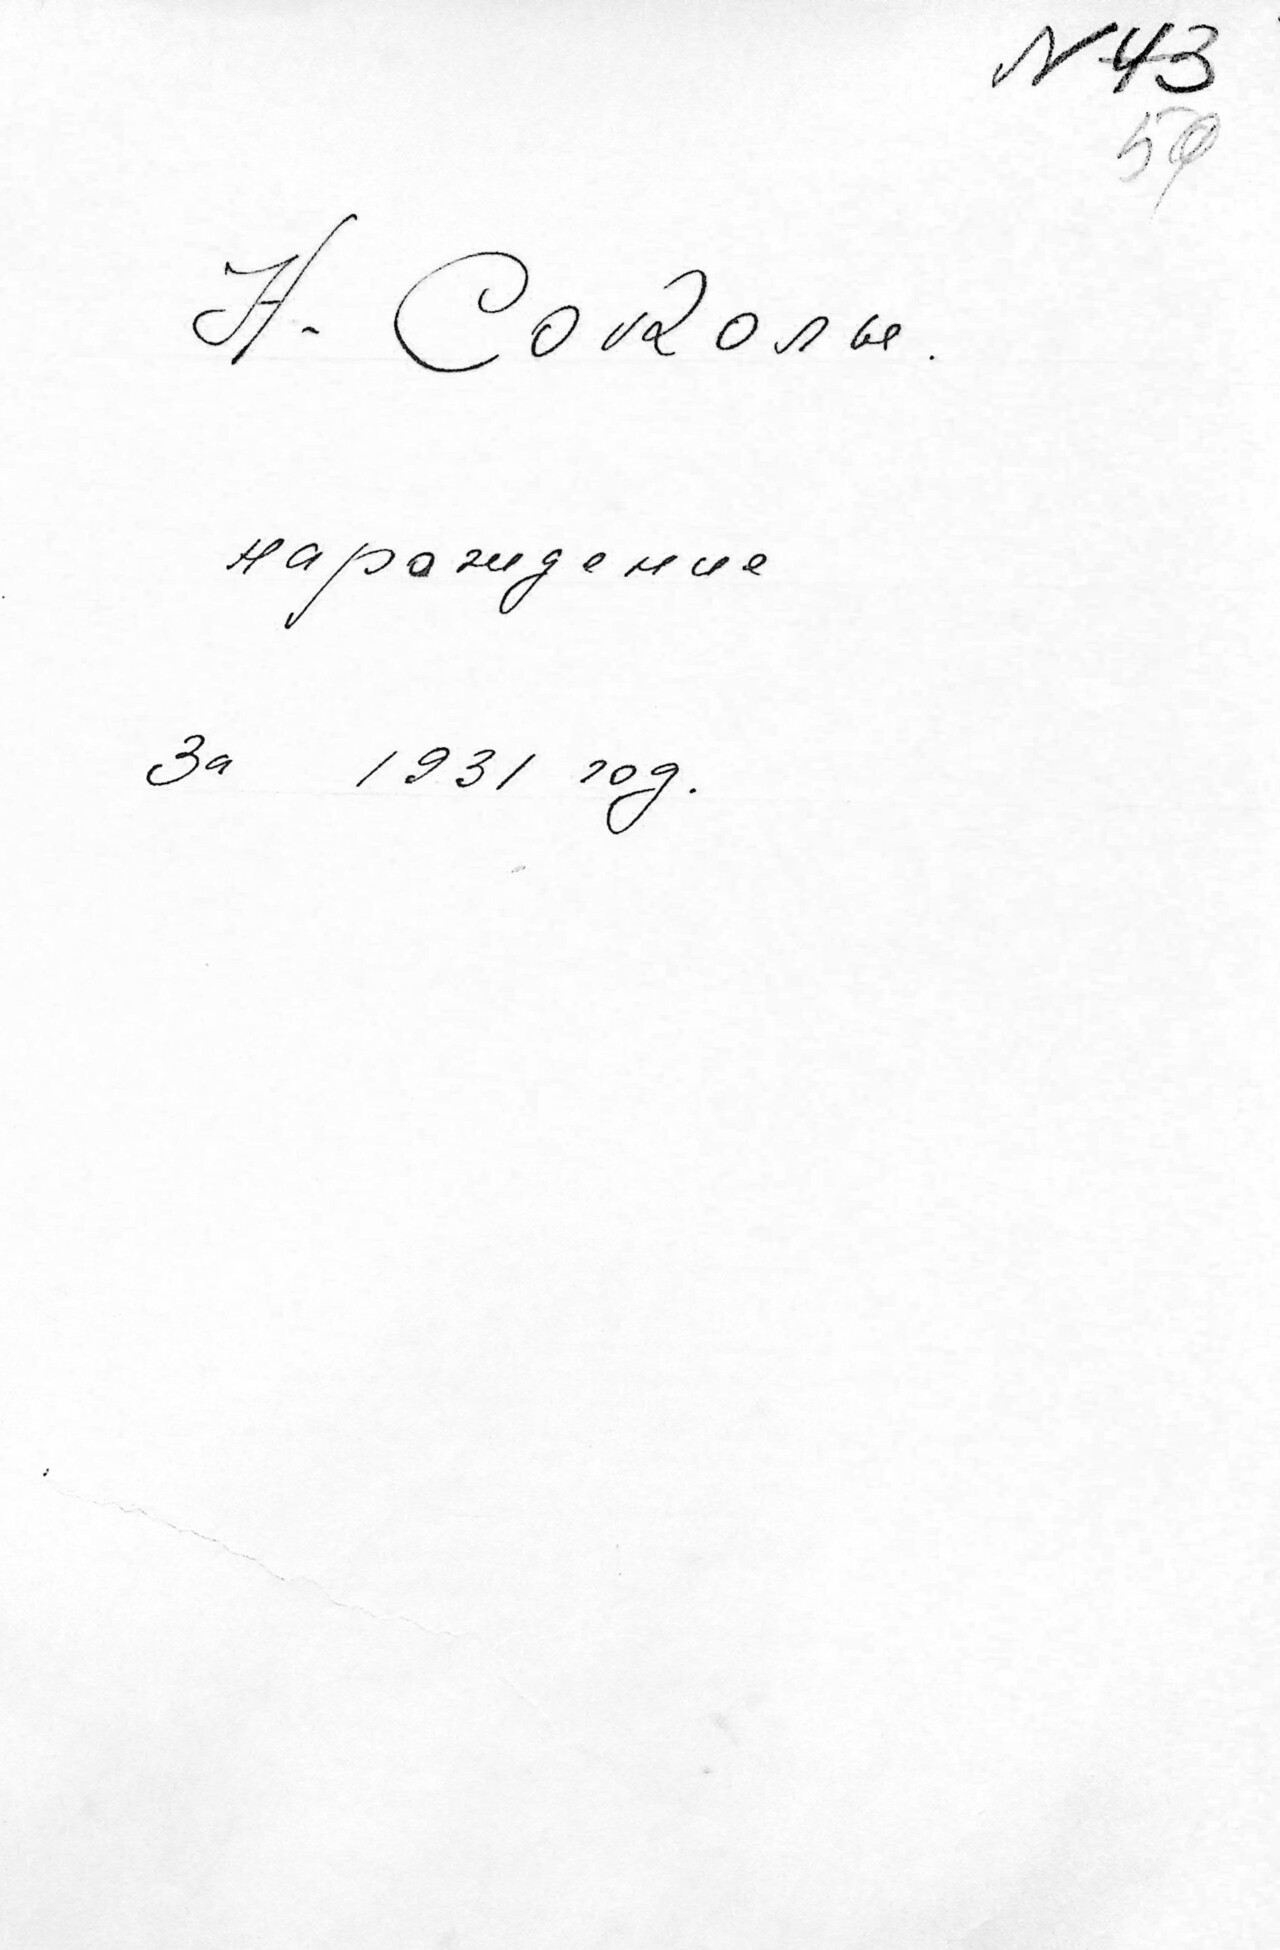 N 43
59
Н. Соколы.
нарождение
За 1931 год.